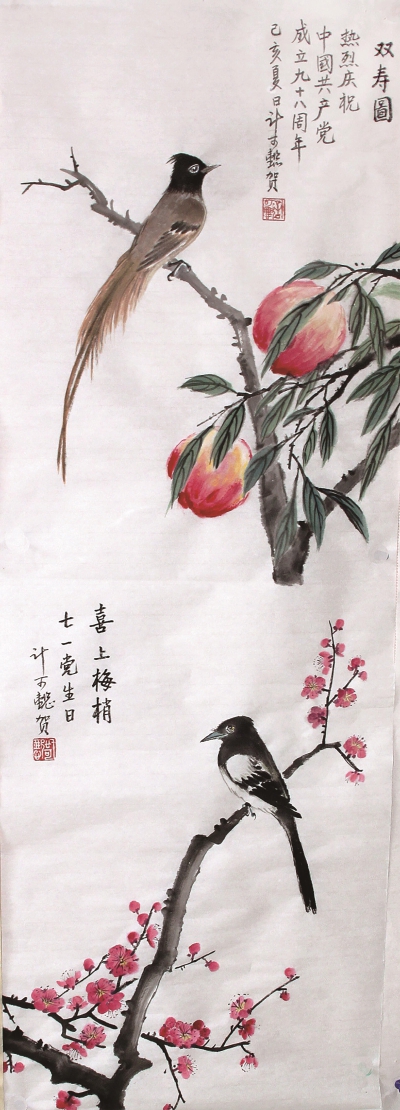 双寿圖
热烈庆祝
中國共产党
成立九十八周年
己亥夏日计可懿贺
喜上梅梢
七一党生日
计可懿贺